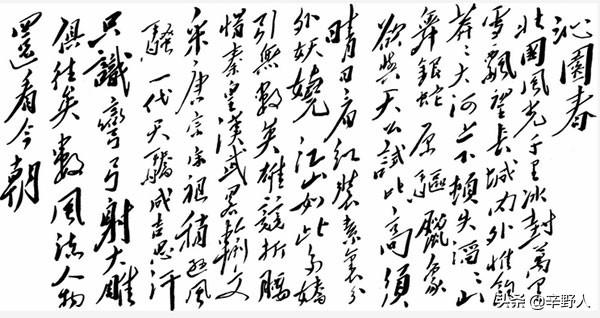 沁園春
北國風光千里冰封萬里
雪飄望長城内外惟餘
莽々大河上下頓失滔々山
舞銀蛇原驅臘象
欲與天公試比高須
晴日看紅裝素裹分
外妖嬈江山如此多嬌
引無數英雄競折腰
惜秦皇漢武畧輸文
采唐宗宋祖稍遜風
騷一代天驕成吉思汗
只識彎弓射大雕
俱往矣數風流人物
還看今朝
头条 @辛野人